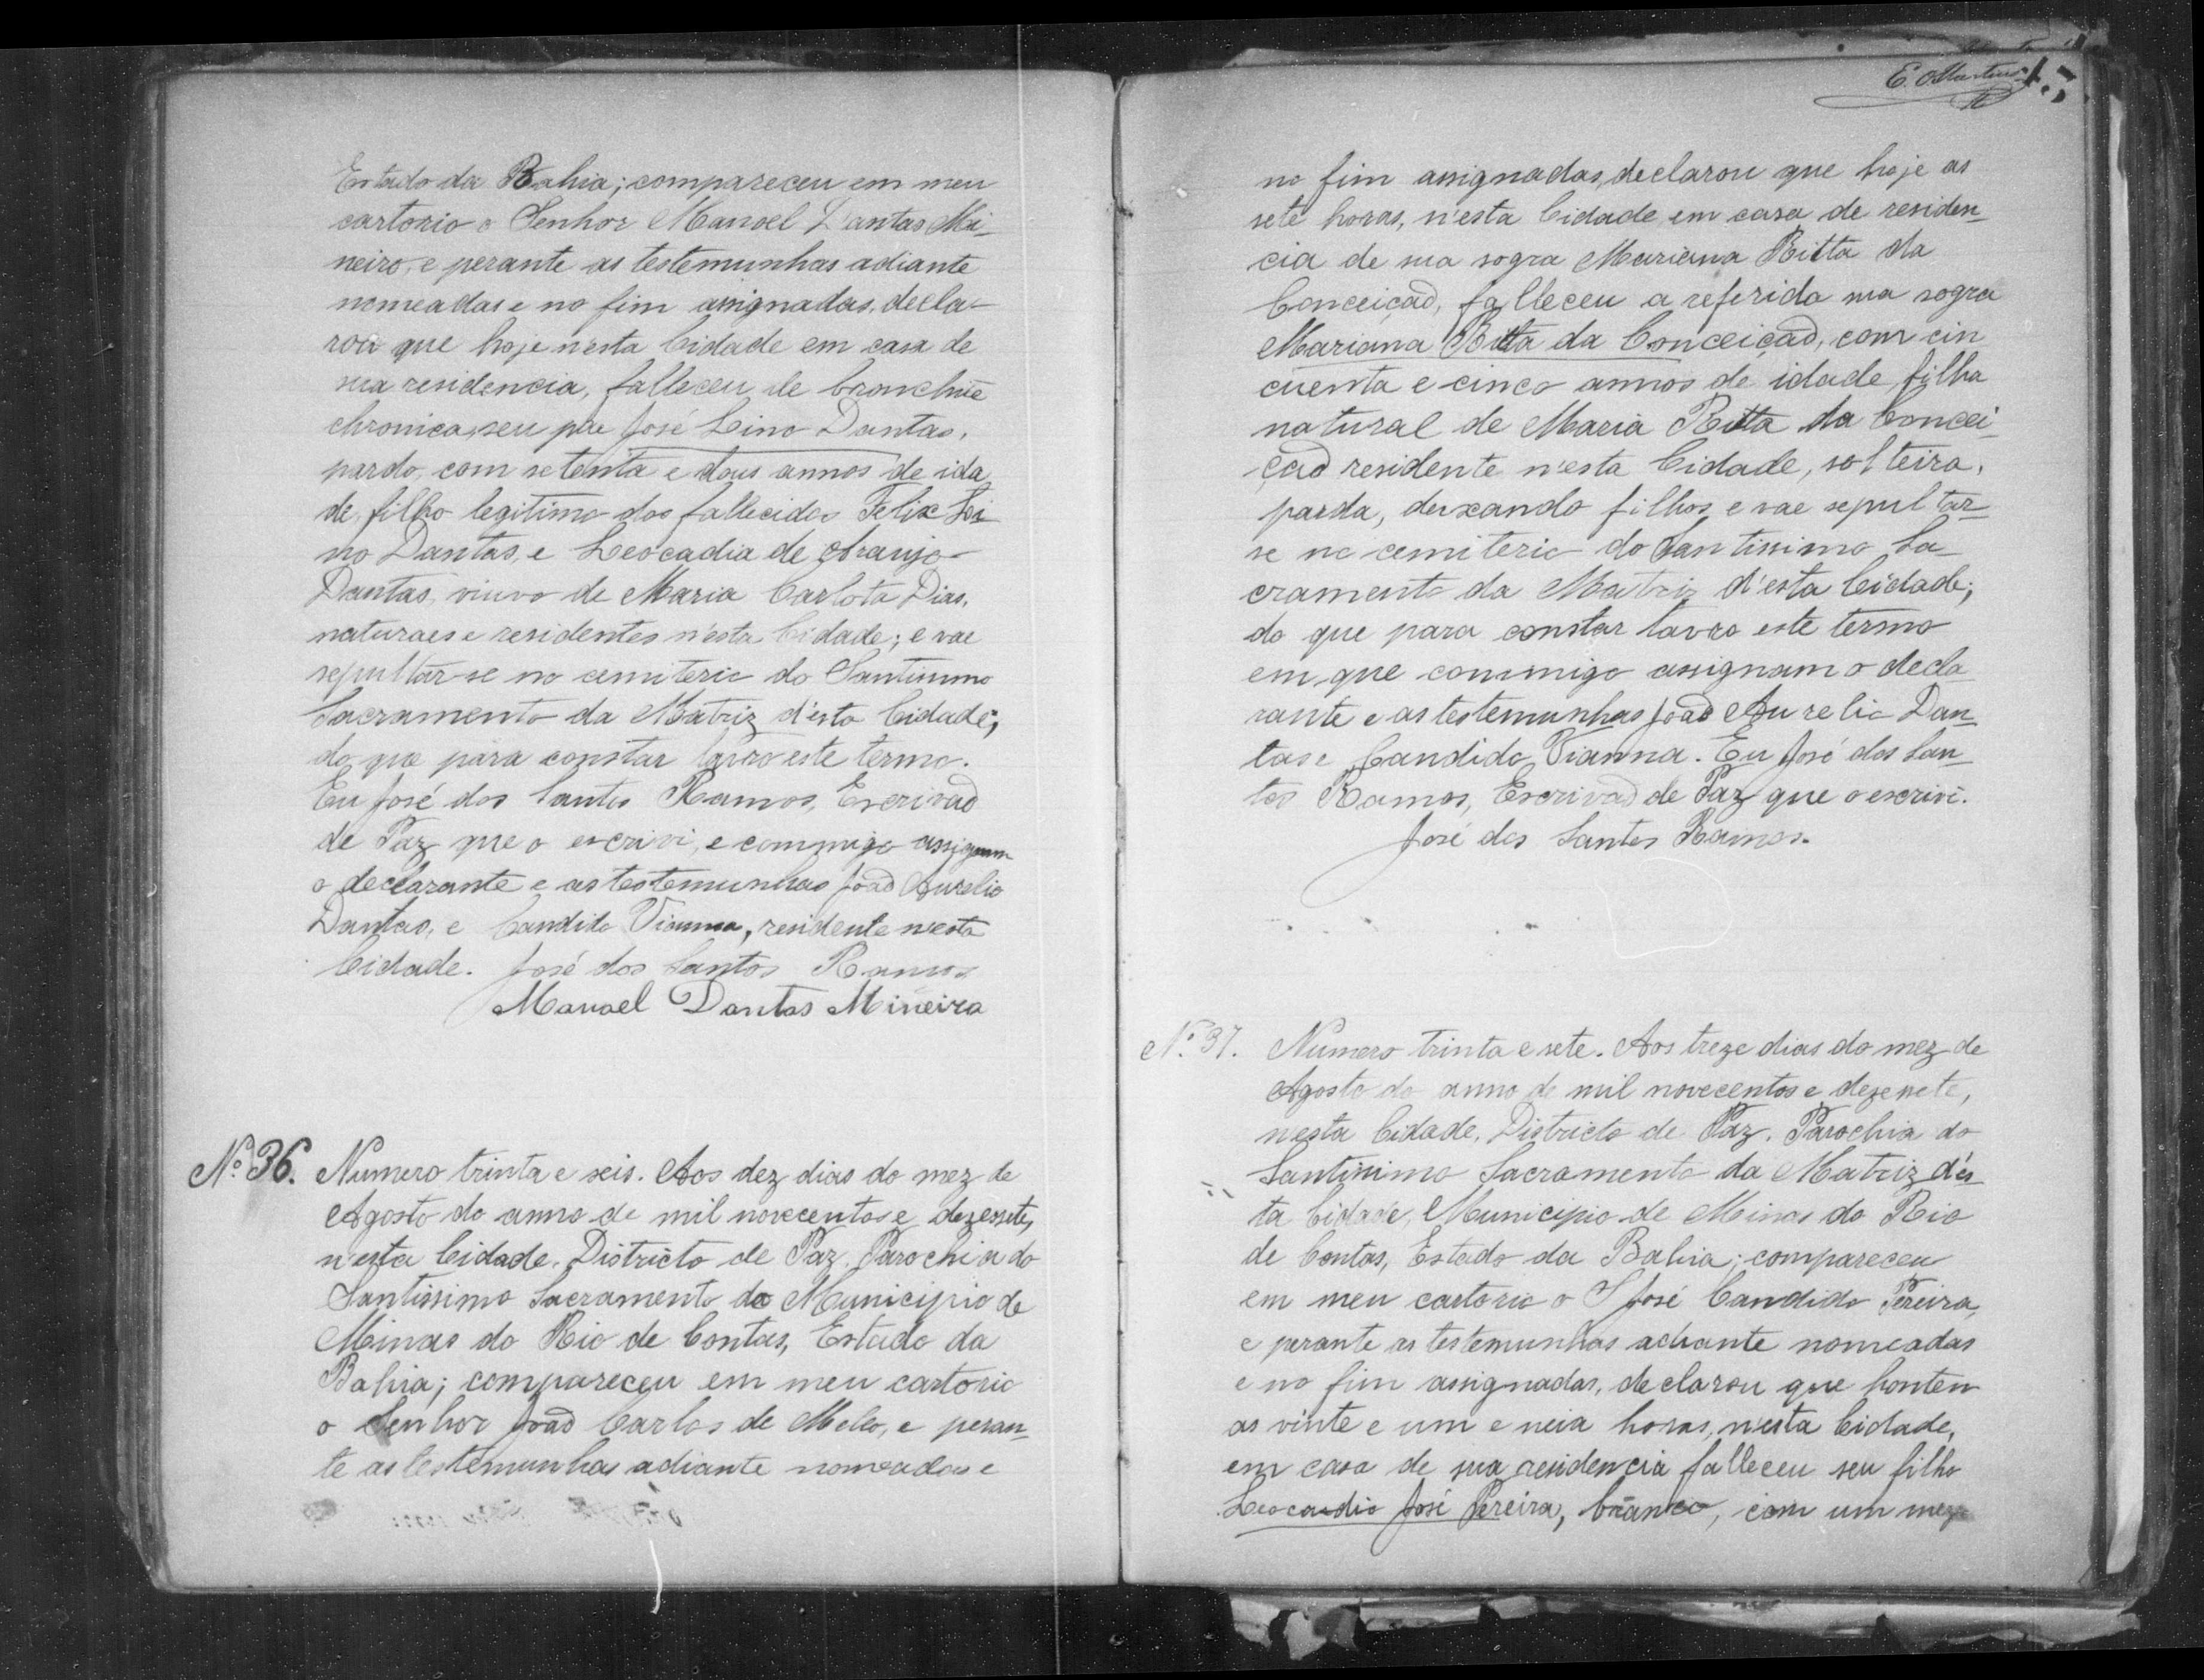 Estado da Bahia; compareceu em meu
cartorio o Senhor Manoel Dantas Mi_
neiro, e perante as testemunhas adiante
nomeadas e no fim assignadas, decla-
rou que hoje n'esta Cidade em casa de
sua residencia, falleceu de bronchite
chronica, seu pae José Lino Dantas,
pardo, com setenta e dous annos de ida
de, filho legitimo dos fallecidos Felix Li
no Dantas, e Leocadia de Araujo
Dantas, viuvo de Maria Carlota Dias,
naturaes e residentes n'esta Cidade; e vae
sepultar-se no cemiterio do Santissimo
Sacramento da Matriz d'esta Cidade;
do que para constar lavro este termo.
Eu José dos Santos Ramos, Escrivaõ
de Paz que o escrivi, e commigo assignam
o declarante e as testemunhas Joaõ Aurelio
Dantas, e Candido Vianna, residente n'esta
Cidade. José dos Santos Ramos
Manoel Dantas Mineiro
Nº 36. Numero trinta e seis. Aos dez dias do mez de
Agosto do anno de mil novecentos e dezessete,
n'esta Cidade, Districto de Paz, Parochia do
Santissimo Sacramento do Municipio de
Minas do Rio de Contas, Estado da
Bahia; compareceu em meu cartorio
o Senhor Joaõ Carlos de Mello, e peran_
te as testemunhas adiante nomeadas e
E. Martins
no fim assignadas, declarou que hoje as
sete horas, n'esta Cidade em casa de residen_
cia de sua sogra Mariana Ritta da
Conceiçaõ, falleceu a referida sua sogra
Mariana Ritta da Conceiçaõ, com cin
cuenta e cinco annos de idade, filha
natural de Maria Ritta da Concei_
çaõ residente n'esta Cidade, solteira,
parda, deixando filhos, e vae sepultar_
se no cemiterio do Santissimo Sa_
cramento da Matriz d'esta Cidade;
do que para constar lavro este termo
em que commigo assignam o decla_
rante e as testemunhas Joaõ Aurelio Dan_
tas e Candido Vianna. Eu José dos San_
tos Ramos, Escrivaõ de Paz que o escrivi.
José dos Santos Ramos.
Nº 37. Numero trinta e sete. Aos treze dias do mez de
Agosto do anno de mil novecentos e dezesete,
n'esta Cidade, Districto de Paz, Parochia do
Santissimo Sacramento da Matriz d'es_
ta Cidade, Municipio de Minas do Rio
de Contas, Estado da Bahia; compareceu
em meu cartorio o S José Candido Pereira,
e perante as testemunhas adiante nomeadas
e no fim assignadas, declarou que hontem
as vinte e um e meia horas, n'esta Cidade,
em casa de sua residencia falleceu seu filho
Leocardio José Pereira, branco, com um mez